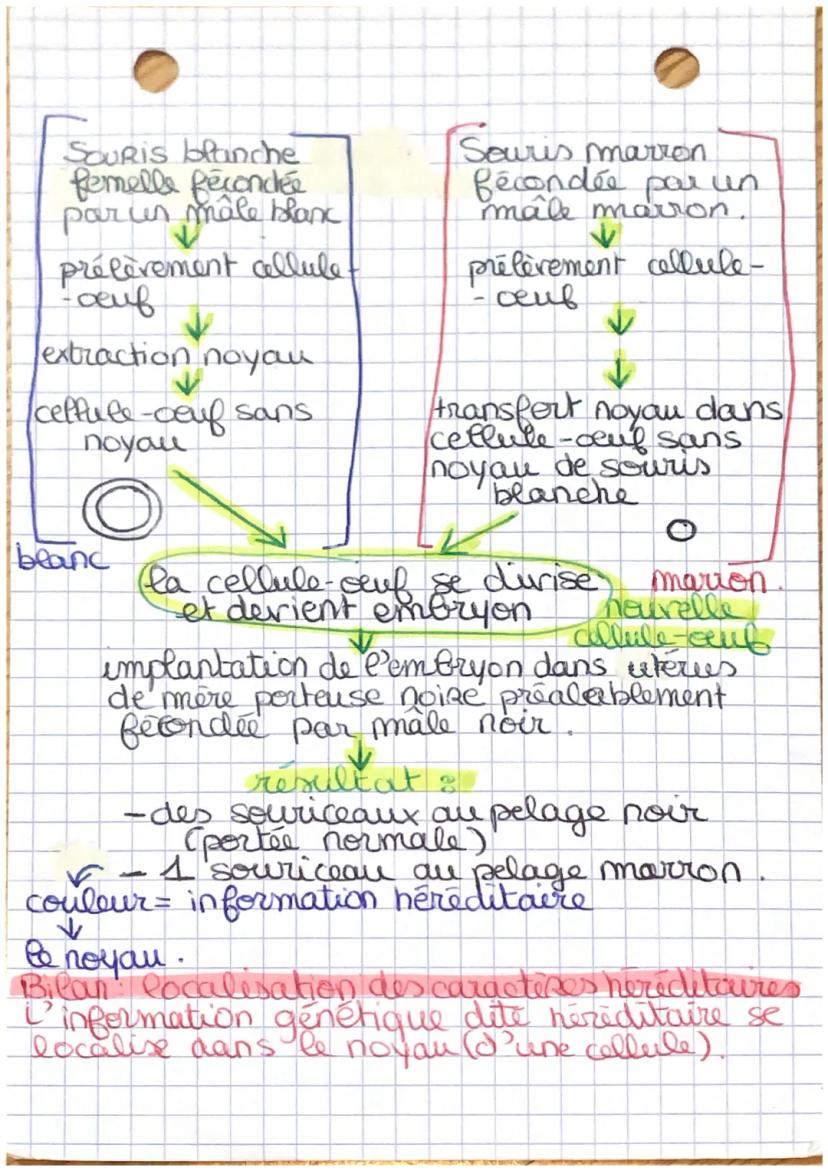 SOURIS blanche
femelle fécondée
par un mâle blanc
↓
prélèvement cellule-
-oeuf
↓
extraction noyau
↓
cellule-oeuf sans
noyau
blanc
Souris marron
fécondée par un
mâle marron.
↓
prélèvement cellule-
-oeuf
↓
↓
transfert noyau dans
cellule-oeuf sans
noyau de souris
blanche
marron.
nouvelle
cellule-oeuf
la cellule-oeuf se divise
et devient embryon
↓
implantation de l'embryon dans utérus
de mère porteuse noire préalablement
fécondée par mâle noir.
↓
résultat :
- des souriceaux au pelage noir
(portée normale)
- 1 souriceau au pelage marron.
couleur = information héréditaire
↓
le noyau.
Bilan : localisation des caractères héréditaires
L'information génétique dite héréditaire se
localise dans le noyau (d'une cellule).